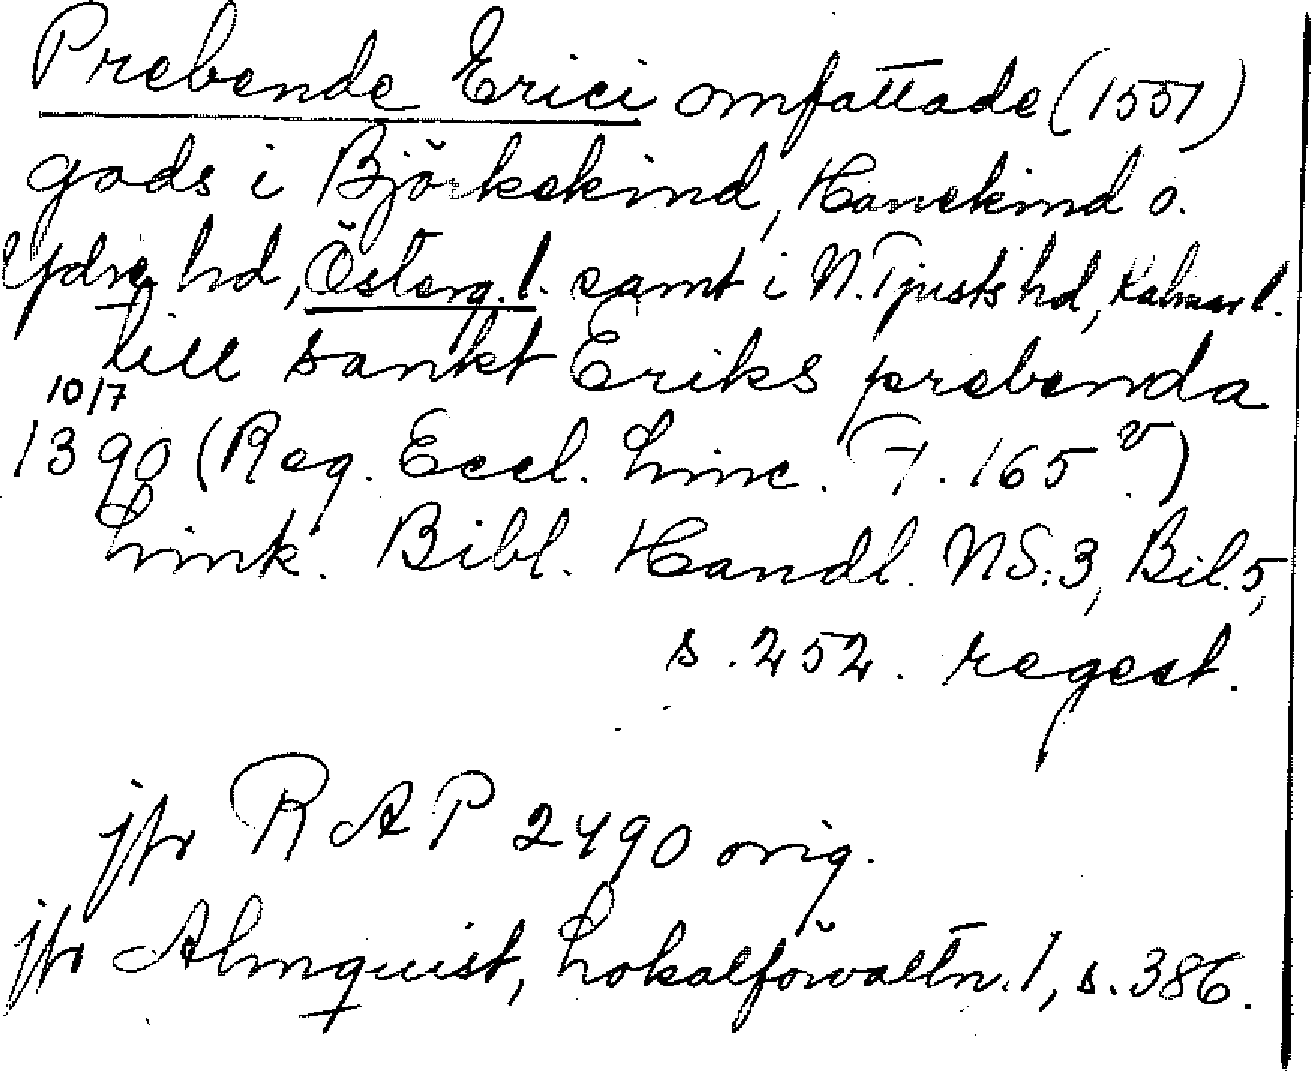 Prebende Erici omfattade (1551)
gods i Björkekind, Hanekind o.
Ydre hd, Österg. l. samt i N. Tjusts hd, Kalmar l.
till sankt Eriks prebenda
10/7
1390 (Reg. Eccl. Linc. F. 165 v.)
Link. Bibl. Handl. NS:3, Bil. 5,
s. 252. regest.
jfr RAP 2490 orig.
jfr Almquist, Lokalförvaltn. I, s. 386.